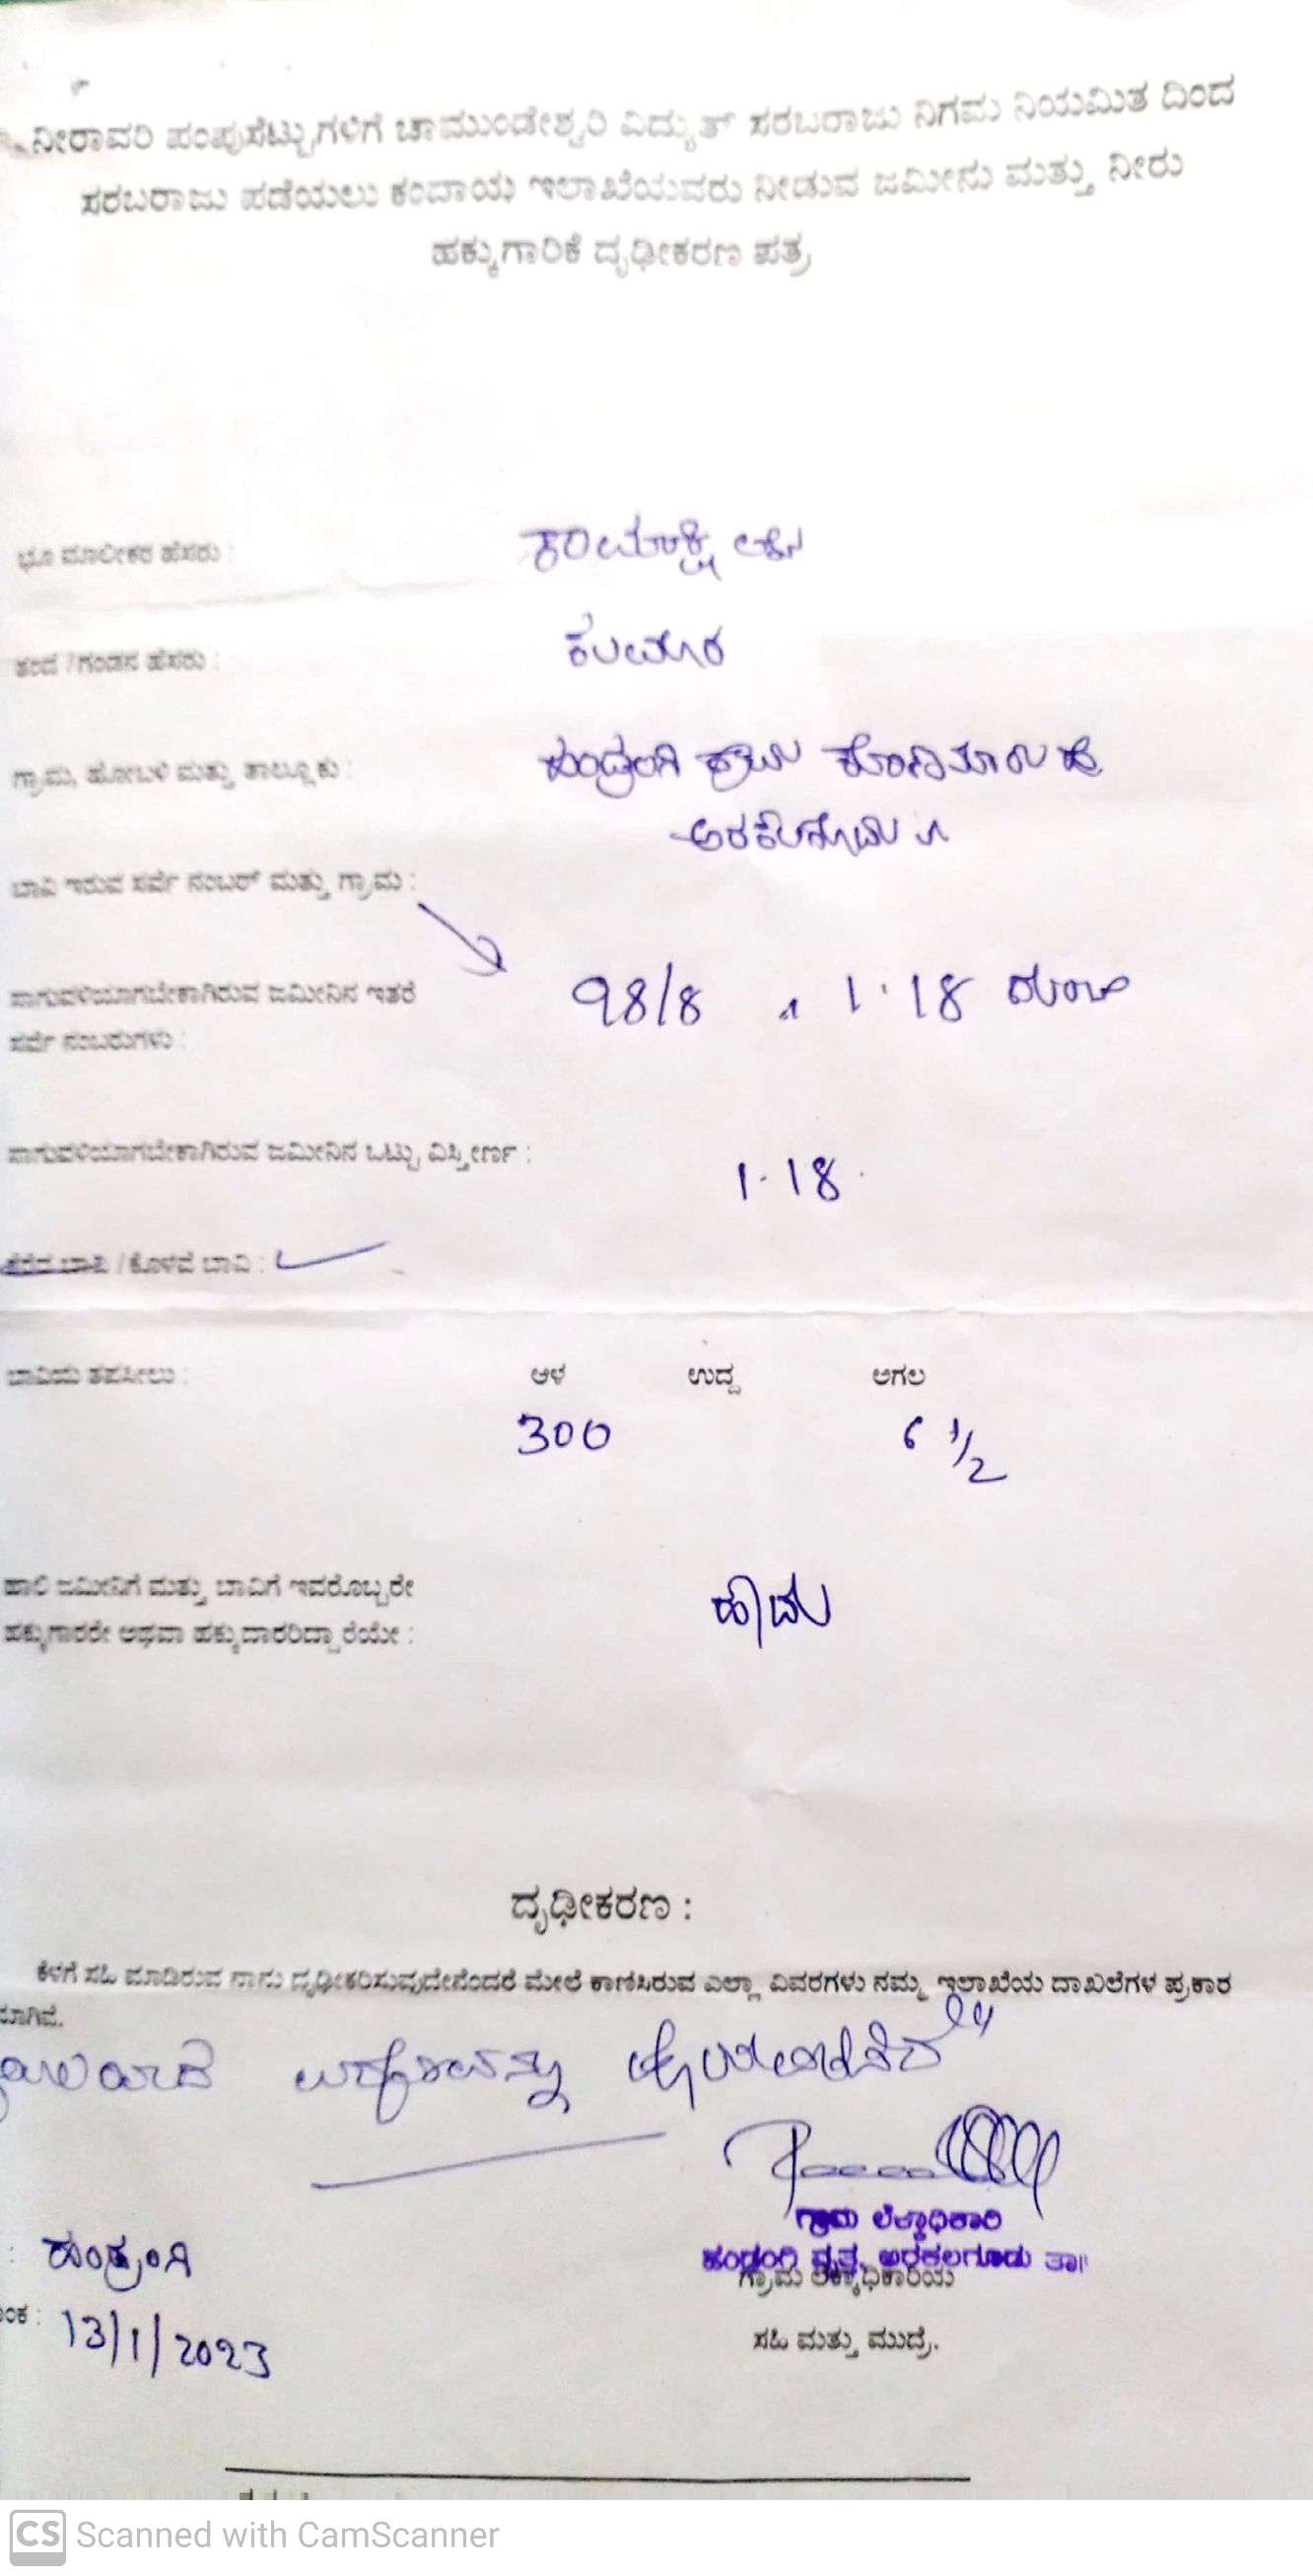 ನೀರಾವರಿ ಪಂಪುಸೆಟ್ಟುಗಳಿಗೆ ಚಾಮುಂಡೇಶ್ವರಿ ವಿದ್ಯುತ್ ಸರಬರಾಜು ನಿಗಮ ನಿಯಮಿತ ದಿಂದ
ಸರಬರಾಜು ಪಡೆಯಲು ಕಂದಾಯ ಇಲಾಖೆಯವರು ನೀಡುವ ಜಮೀನು ಮತ್ತು ನೀರು
ಹಕ್ಕುಗಾರಿಕೆ ದೃಢೀಕರಣ ಪತ್ರ
ಭೂ ಮಾಲೀಕರ ಹೆಸರು :
ತಂದೆ /ಗಂಡನ ಹೆಸರು : ಕುಮಾರ
ಗ್ರಾಮ, ಹೋಬಳಿ ಮತ್ತು ತಾಲ್ಲೂಕು :
ಬಾವಿ ಇರುವ ಸರ್ವೆ ನಂಬರ್ ಮತ್ತು ಗ್ರಾಮ :
ಸಾಗುವಳಿಯಾಗಬೇಕಾಗಿರುವ ಜಮೀನಿನ ಇತರೆ 98/8 1·18
ಸರ್ವೆ ನಂಬರುಗಳು :
ಸಾಗುವಳಿಯಾಗಬೇಕಾಗಿರುವ ಜಮೀನಿನ ಒಟ್ಟು ವಿಸ್ತೀರ್ಣ : 1·18
ತೆರೆದ ಬಾವಿ /ಕೊಳವೆ ಬಾವಿ :
ಬಾವಿಯ ತಪಸೀಲು : ಆಳ ಉದ್ದ ಅಗಲ
300 6 1/2
ಹಾಲಿ ಜಮೀನಿಗೆ ಮತ್ತು ಬಾವಿಗೆ ಇವರೊಬ್ಬರೇ
ಹಕ್ಕುಗಾರರೇ ಅಥವಾ ಹಕ್ಕುದಾರರಿದ್ದಾರೆಯೇ : ಹೌದು
ದೃಢೀಕರಣ :
ಕೆಳಗೆ ಸಹಿ ಮಾಡಿರುವ ನಾನು ದೃಢೀಕರಿಸುವುದೇನೆಂದರೆ ಮೇಲೆ ಕಾಣಿಸಿರುವ ಎಲ್ಲಾ ವಿವರಗಳು ನಮ್ಮ ಇಲಾಖೆಯ ದಾಖಲೆಗಳ ಪ್ರಕಾರ
ಗ್ರಾಮ ಲೆಕ್ಕಾಧಿಕಾರಿ
ಹಂಡ್ರಂಗಿ ವೃತ್ತ, ಅರಕಲಗೂಡು ತಾ||
ಹಂಡ್ರಂಗಿ
ಗ್ರಾಮ ಲೆಕ್ಕಾಧಿಕಾರಿಯ
13/1/2023
ಸಹಿ ಮತ್ತು ಮುದ್ರೆ.
CS Scanned with CamScanner